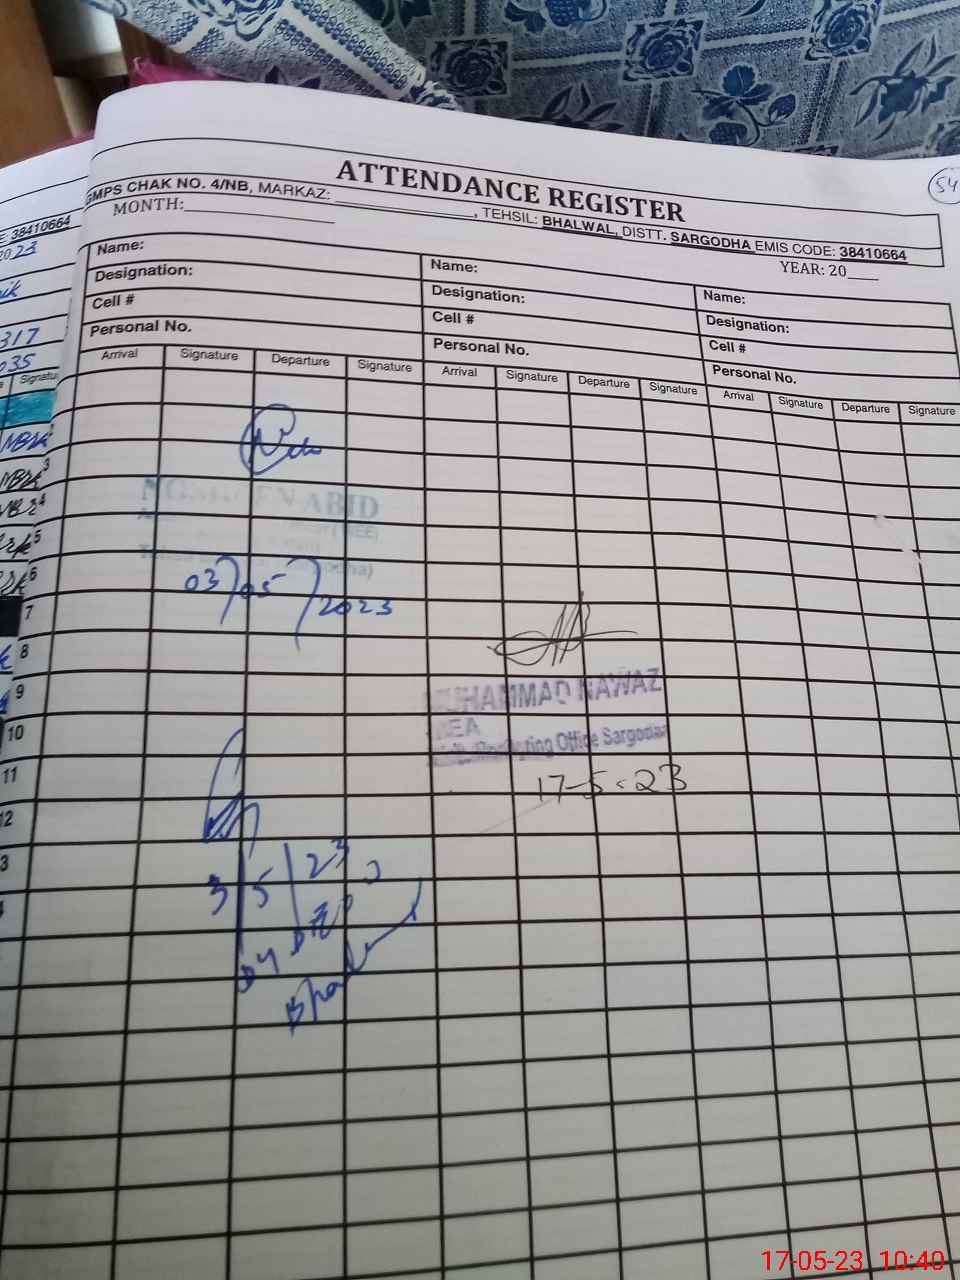 54
ATTENDANCE REGISTER
GMPS CHAK NO. 4/NB, MARKAZ: ____________, TEHSIL: BHALWAL, DISTT. SARGODHA EMIS CODE: 38410664
MONTH:____________ YEAR: 20___
Name: Name: Name:
Designation: Designation: Designation:
Cell # Cell # Cell #
Personal No. Personal No. Personal No.
Arrival Signature Departure Signature Arrival Signature Departure Signature Arrival Signature Departure Signature
ABID
03/05/2023
MUHAMMAD NAWAZ
MEA
Office Sargodha
17-5-23
3/5/23
E: 38410664
2023
317
035
Signatu
3
4
5
6
7
8
9
10
11
12
3
17-05-23 10:40